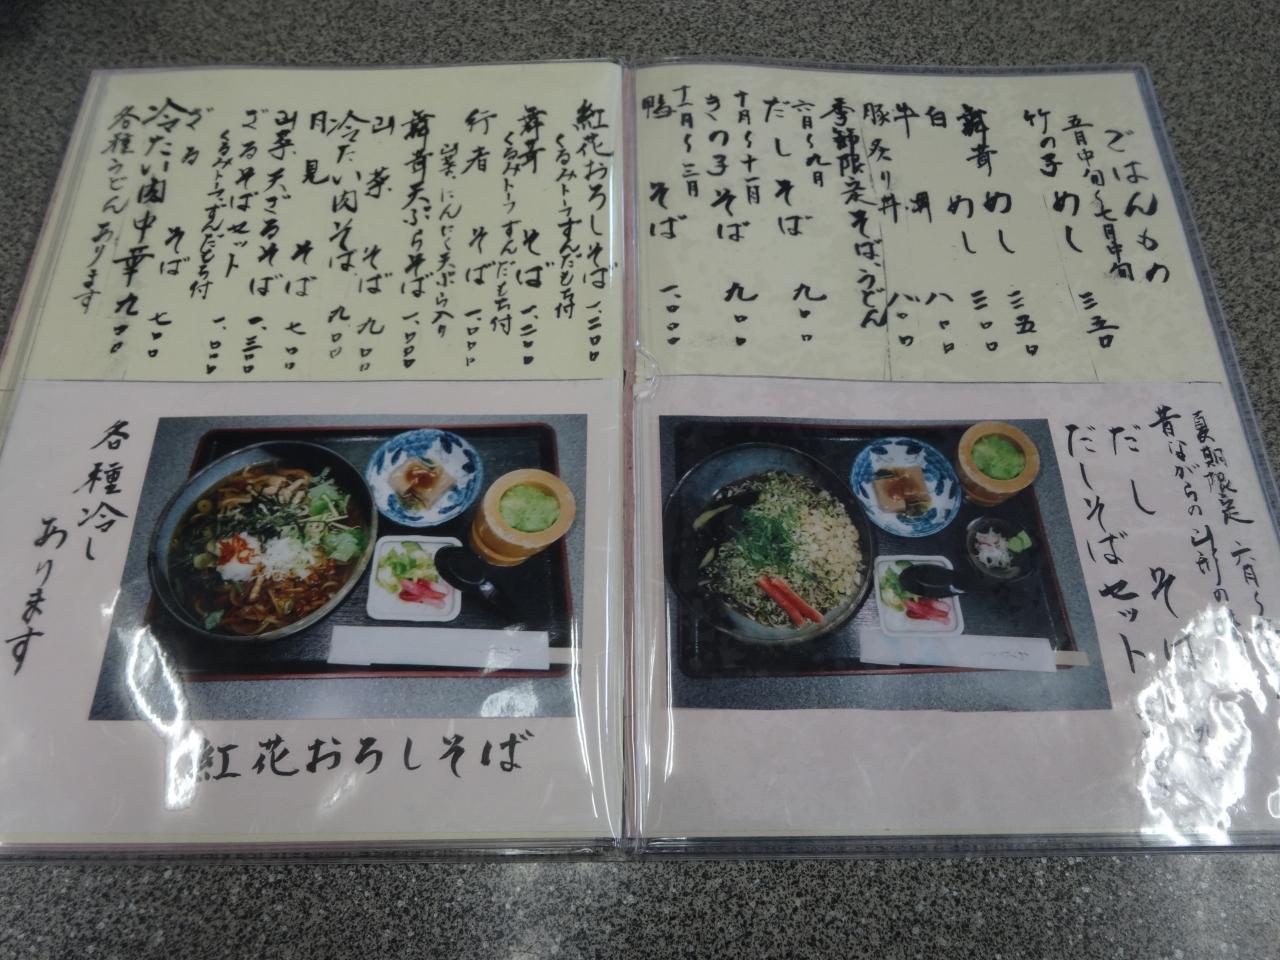 ごはんもの
五月中旬〜七月中旬
竹の子めし 三五〇
舞茸めし 三五〇
白めし 三〇〇
牛丼 八〇〇
豚炙り丼 八〇〇
季節限定そば、うどん
六月〜九月
だしそば 九〇〇
十月〜十一月
きの子そば 九〇〇
十二月〜三月
鴨そば 一、〇〇〇
紅花おろしそば 一、二〇〇
くるみトーフずんだもち付
舞茸そば 一、二〇〇
くるみトーフずんだもち付
行者そば 一、〇〇〇
山菜、にんにく天ぷら入り
舞茸天ぷらそば 一、〇〇〇
山菜そば 九〇〇
冷たい肉そば 九〇〇
月見そば 七〇〇
山菜天ざるそば 一、三〇〇
ざるそばセット 一、〇〇〇
くるみトーフずんだもち付
ざるそば 七〇〇
冷たい肉中華 九〇〇
各種うどんあります
夏期限定 六月〜
昔ながらの山形の
だしそば
だしそばセット
各種冷し
あります
紅花おろしそば